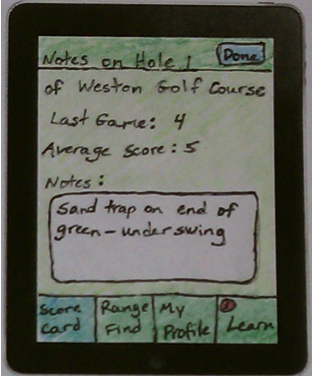 Notes on Hole 1
Done
of Weston Golf Course
Last Game: 4
Average Score: 5
Notes:
Sand trap on end of
green - underswing
Score Card
Range Find
My Profile
Learn